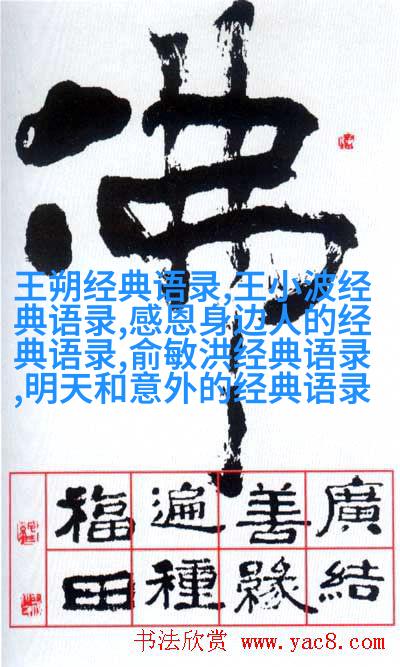 佛
王朔经典语录,王小波经
典语录,感恩身边人的经
典语录,俞敏洪经典语录
,明天和意外的经典语录
廣結
善緣
遍種
福田
书法欣赏 www.yac8.com